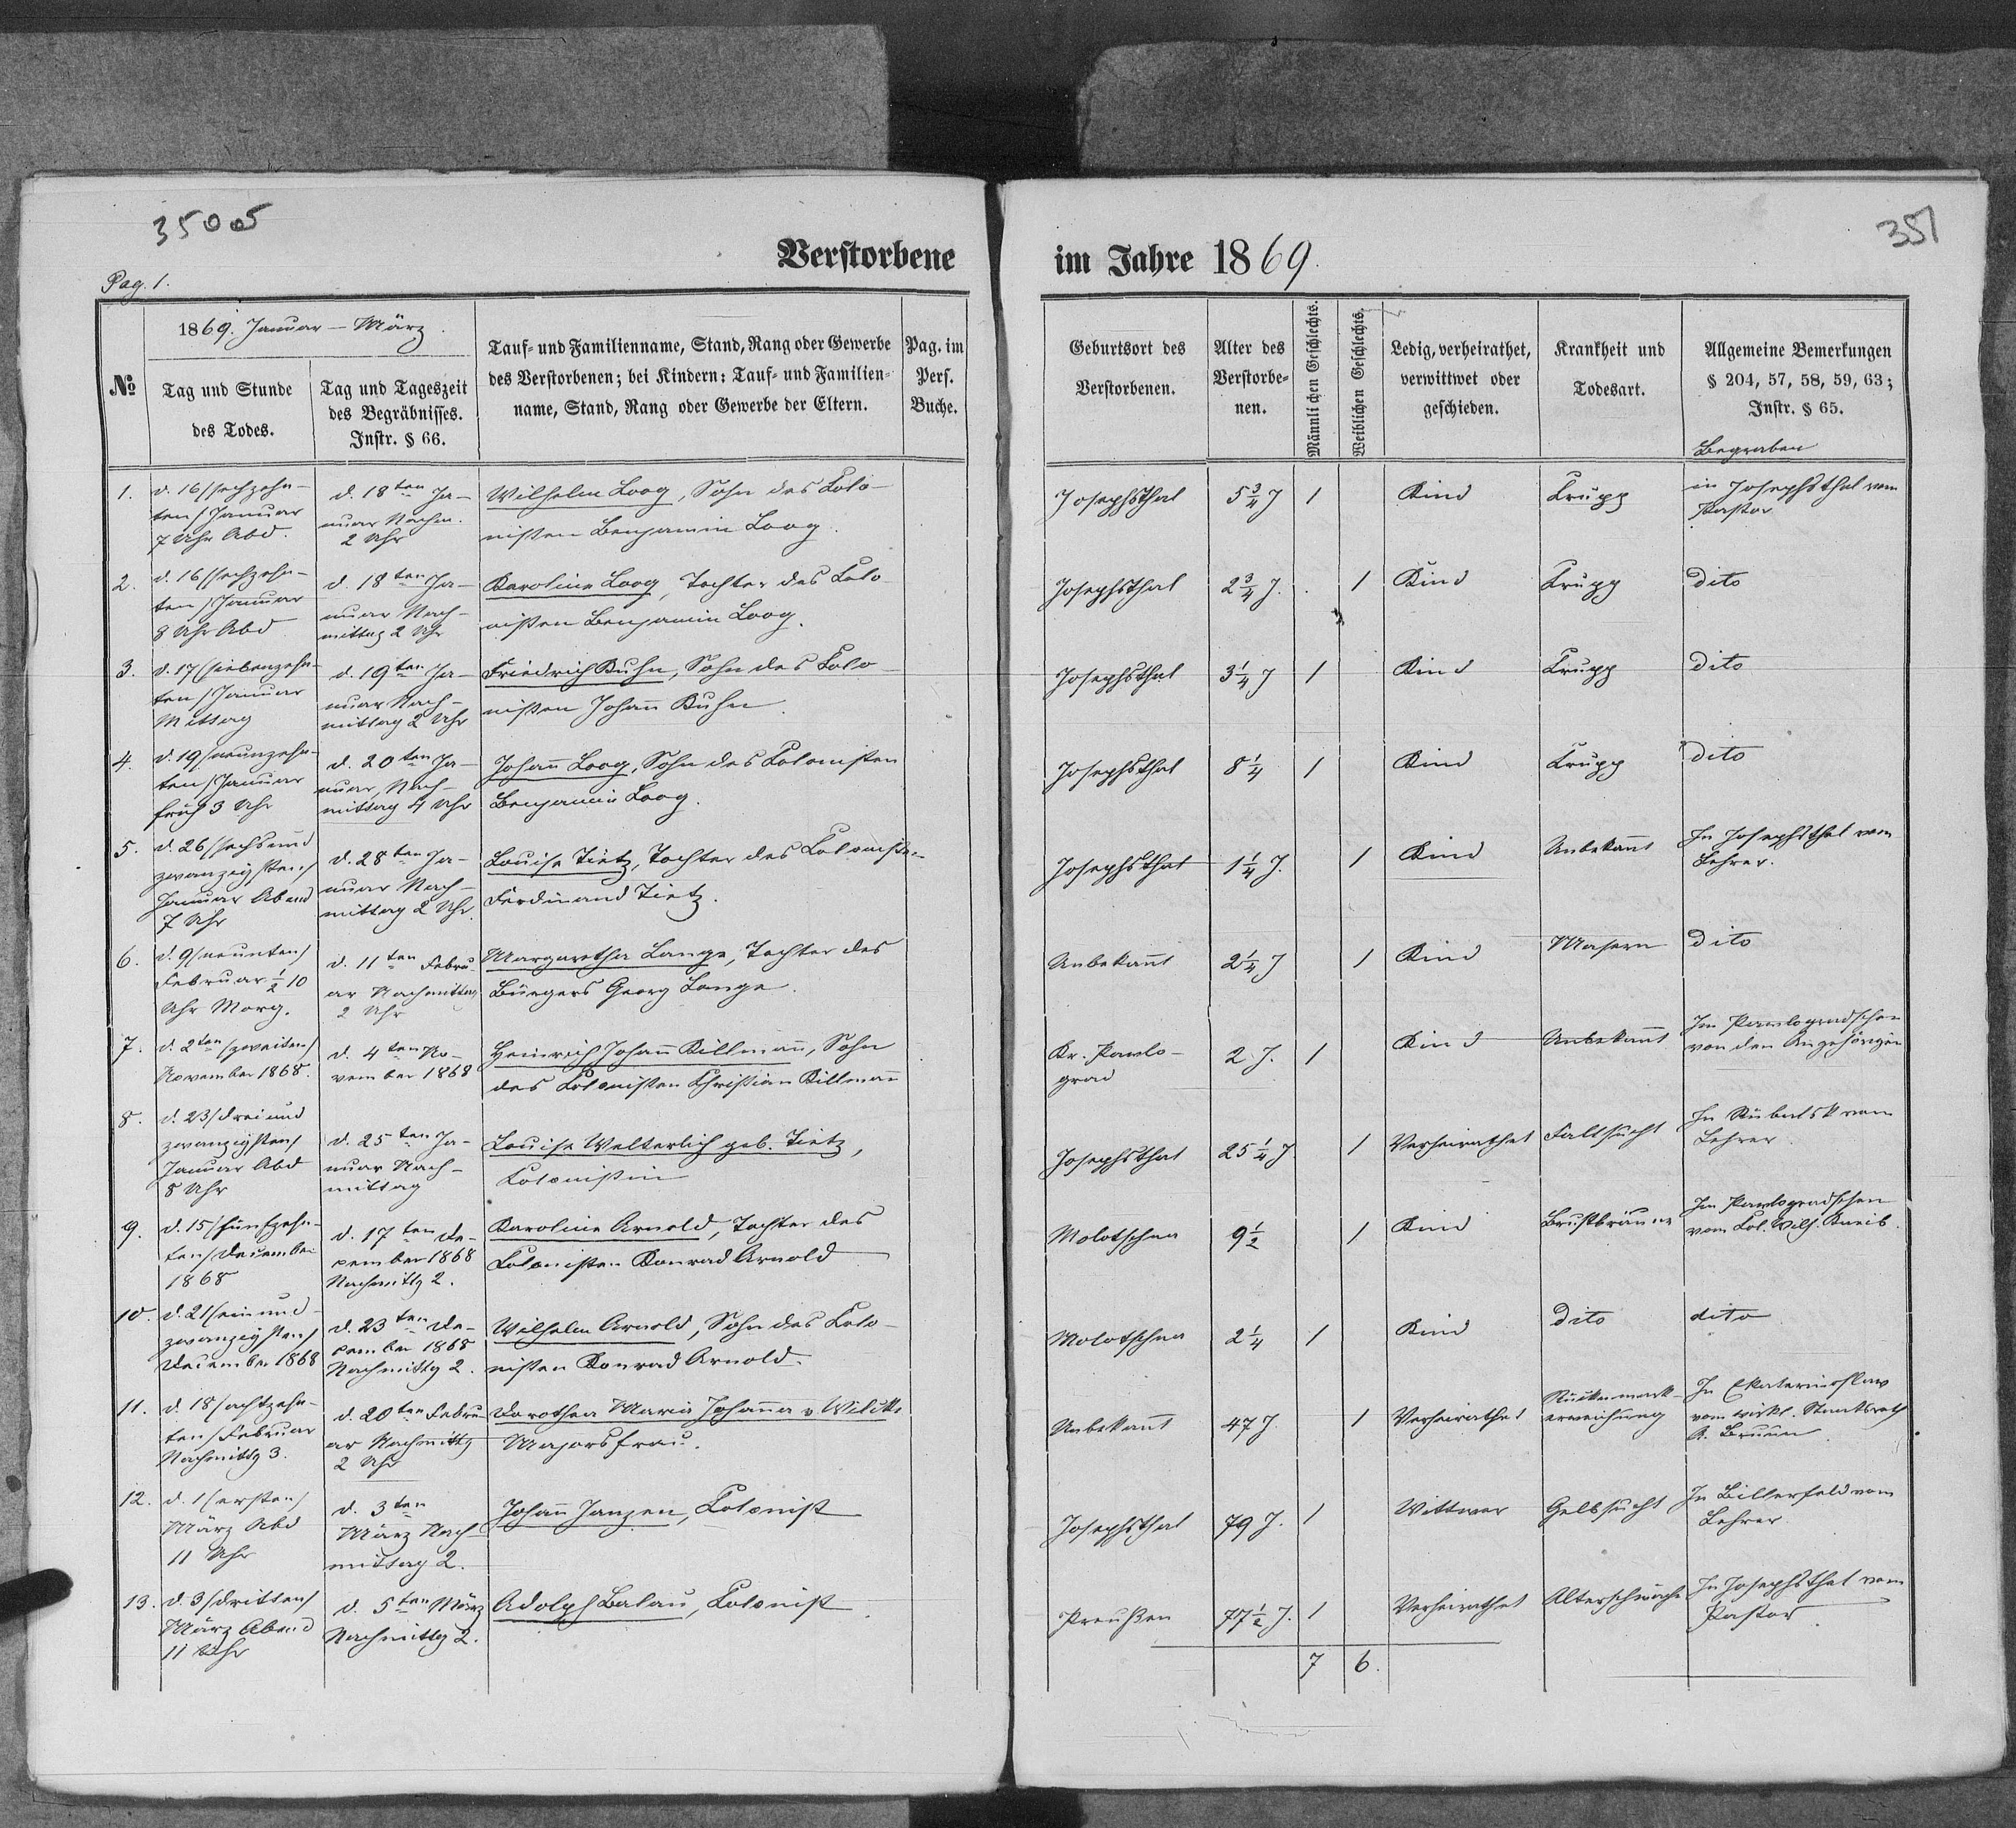 35005
351
Verstorbene im Jahre 1869.
Pag. 1.
№
1869. Januar — März.
Tag und Stunde
des Todes.
Tag und Tageszeit
des Begräbnisses.
Instr. § 66.
Tauf- und Familienname, Stand, Rang oder Gewerbe
des Verstorbenen; bei Kindern: Tauf- und Familien-
name, Stand, Rang oder Gewerbe der Eltern.
Pag. im
Pers.
Buche.
Geburtsort des
Verstorbenen.
Alter des
Verstorbe-
nen.
Männlichen Geschlechts.
Weiblichen Geschlechts.
Ledig, verheirathet,
verwittwet oder
geschieden.
Krankheit und
Todesart.
Allgemeine Bemerkungen
§ 204, 57, 58, 59, 63;
Instr. § 65.
Begraben
1.
d. 16 /sechzehn-
ten/ Januar
7 Uhr Abd.
d. 18ten Ja-
nuar Nachm.
2 Uhr
Wilhelm Loog, Sohn des Colo-
nisten Benjamin Loog.
Josephsthal
5 3/4 J
1
Kind
Krupp
in Josephsthal vom
Pastor
2.
d. 16 /sechzehn-
ten/ Januar
8 Uhr Abd
d. 18ten Ja-
nuar Nach-
mittag 2 Uhr
Karoline Loog, Tochter des Colo-
nisten Benjamin Loog.
Josephsthal
2 3/4 J.
1
Kind
Krupp
dito
3.
d. 17 /siebenzehn-
ten/ Januar
Mittag
d. 19ten Ja-
nuar Nach-
mittag 2 Uhr
Friedrich Kuhn, Sohn des Colo-
nisten Johann Kuhn
Josephsthal
3 1/4 J
1
Kind
Krupp
dito
4.
d. 19 /neunzehn-
ten/ Januar
früh 3 Uhr
d. 20ten Ja-
nuar, Nach-
mittag 4 Uhr
Johann Loog, Sohn des Colonisten
Benjamin Loog.
Josephsthal
8 1/4
1
Kind
Krupp
dito
5.
d. 26 /sechsund
zwanzigsten/
Januar Abend
7 Uhr
d. 28ten Ja-
nuar Nach-
mittag 2 Uhr.
Louise Tietz, Tochter des Colonisten
Ferdinand Tietz.
Josephsthal
1 1/4 J.
1
Kind
Unbekannt
In Josephsthal vom
Lehrer.
6.
d. 9 /neunten/
Februar 1/2 10
Uhr Morg.
d. 11ten Febru-
ar Nachmittag
2 Uhr
Margaretha Lange, Tochter des
Bürgers Georg Lange.
Unbekannt
2 1/4 J
1
Kind
Masern
dito
7.
d. 2ten /zweiten/
November 1868.
d. 4ten No-
vember 1868
Heinrich Johann Killmann, Sohn
des Colonisten Christian Killmann
Kr. Pawlo-
grad
2 J.
1
Kind
Unbekannt
Im Pawlogradschen
von den Angehörigen
8.
d. 23 /dreiund
zwanzigsten/
Januar Abd
8 Uhr
d. 25ten Ja-
nuar Nach-
mittag
Louise Welterlich geb. Tietz,
Colonistin
Josephsthal
25 1/4 J
1
Verheirathet
Fallsucht
In Rübalsk vom
Lehrer
9.
d. 15 /fünfzehn-
ten/ December
1868
d. 17ten De-
cember 1868
Nachmittg 2.
Karoline Arnold, Tochter des
Colonisten Konrad Arnold
Molotschna
9 1/2
1
Kind
Brustbräune
Im Pawlogradschen
vom Col. Wilh. Kneib.
10.
d. 21 /einund-
zwanzigsten/
December 1868
d. 23ten De-
cember 1868
Nachmittg 2.
Wilhelm Arnold, Sohn des Colo-
nisten Konrad Arnold.
Molotschna
2 1/4
1
Kind
dito
dito
11.
d. 18 /achtzehn-
ten/ Februar
Nachmittg 3.
d. 20ten Febru-
ar Nachmittg
2 Uhr
Dorothea Maria Johanna v. Wilcke
Majorsfrau.
Unbekannt
47 J.
1
Verheirathet
Rückenmark-
erweichung
In Ekaterinoslaw
vom wirkl. Staatsrath
A. Bruun
12.
d. 1 /ersten/
März Abd
11 Uhr
d. 3ten
März Nach-
mittag 2.
Johann Janzen, Colonist
Josephsthal
79 J.
1
Wittwer
Gelbsucht
In Billerfeld vom
Lehrer
13.
d. 3 /dritten/
März Abend
11 Uhr
d. 5ten März
Nachmittg 2.
Adolph Balau, Colonist
Preußen
77 1/2 J.
1
Verheirathet
Alterschwäche
In Josephsthal vom
Pastor
7
6.